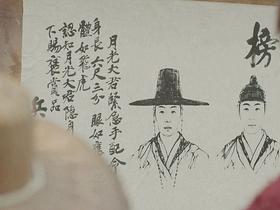 榜
月光大君緊急手配
身長六尺三分 眼如
體如飛虎
認知月光大君隱身
下賜褒賞品
兵